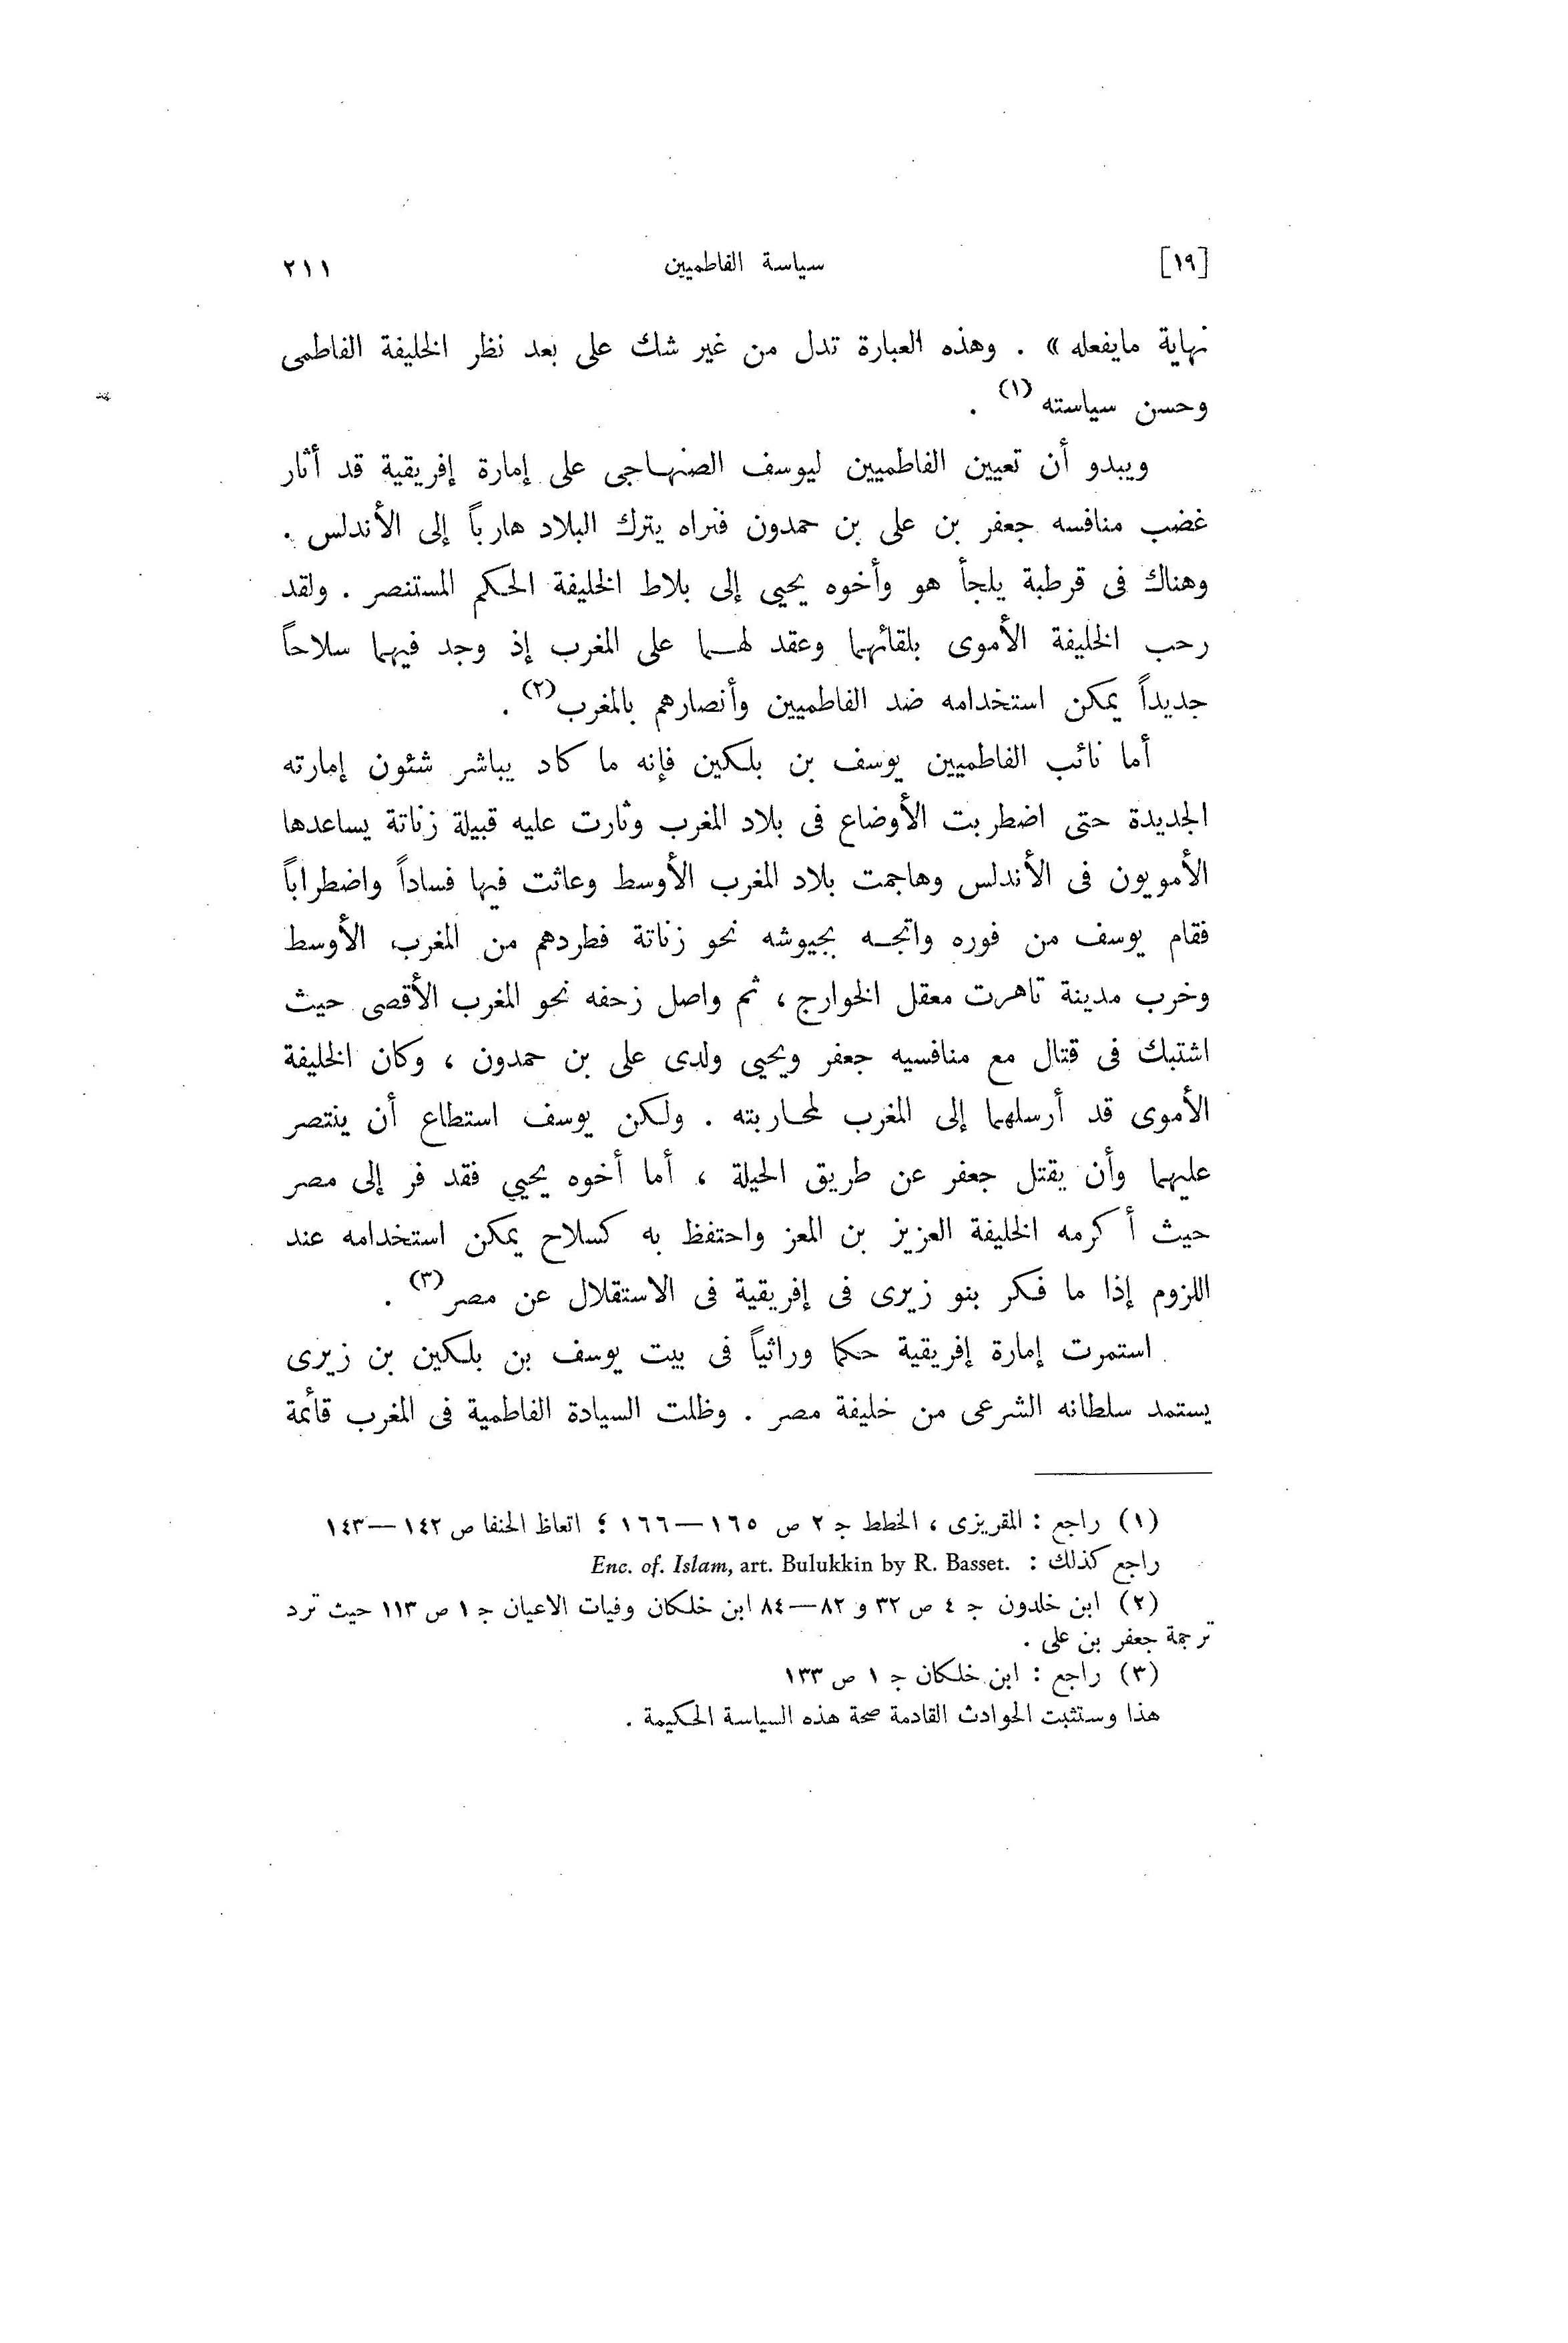 [١٩] سياسة الفاطميين ٢١١
نهاية مايفعله » . وهذه العبارة تدل من غير شك على بعد نظر الخليفة الفاطمى
وحسن سياسته (١) .
ويبدو أن تعيين الفاطميين ليوسف الصنهاجى على إمارة إفريقية قد أثار
غضب منافسه جعفر بن على بن حمدون فنراه يترك البلاد هارباً إلى الأندلس .
وهناك فى قرطبة يلجأ هو وأخوه يحيى إلى بلاط الخليفة الحكم المستنصر . ولقد
رحب الخليفة الأموى بلقائهما وعقد لهما على المغرب إذ وجد فيهما سلاحاً
جديداً يمكن استخدامه ضد الفاطميين وأنصارهم بالمغرب (٢) .
أما نائب الفاطميين يوسف بن بلكين فإنه ما كاد يباشر شئون إمارته
الجديدة حتى اضطربت الأوضاع فى بلاد المغرب وثارت عليه قبيلة زناتة يساعدها
الأمويون فى الأندلس وهاجمت بلاد المغرب الأوسط وعاثت فيها فساداً واضطراباً
فقام يوسف من فوره واتجه بجيوشه نحو زناتة فطردهم من المغرب الأوسط
وخرب مدينة تاهرت معقل الخوارج ، ثم واصل زحفه نحو المغرب الأقصى حيث
اشتبك فى قتال مع منافسيه جعفر ويحيى ولدى على بن حمدون ، وكان الخليفة
الأموى قد أرسلهما إلى المغرب لمحاربته . ولكن يوسف استطاع أن ينتصر
عليهما وأن يقتل جعفر عن طريق الحيلة ، أما أخوه يحيي فقد فر إلى مصر
حيث أكرمه الخليفة العزيز بن المعز واحتفظ به كسلاح يمكن استخدامه عند
اللزوم إذا ما فكر بنو زيرى فى إفريقية فى الاستقلال عن مصر (٣) .
استمرت إمارة إفريقية حكما وراثياً فى بيت يوسف بن بلكين بن زيرى
يستمد سلطانه الشرعى من خليفة مصر . وظلت السيادة الفاطمية فى المغرب قائمة
(١) راجع : المقريزى ، الخطط ج ٢ ص ١٦٥—١٦٦ ؛ اتعاظ الحنفا ص ١٤٢—١٤٣
راجع كذلك : Enc. of. Islam, art. Bulukkin by R. Basset.
(٢) ابن خلدون ج ٤ ص ٣٢ و ٨٢—٨٤ ابن خلكان وفيات الاعيان ج ١ ص ١١٣ حيث ترد
ترجمة جعفر بن على .
(٣) راجع : ابن خلكان ج ١ ص ١٣٣
هذا وستثبت الحوادث القادمة صحة هذه السياسة الحكيمة .